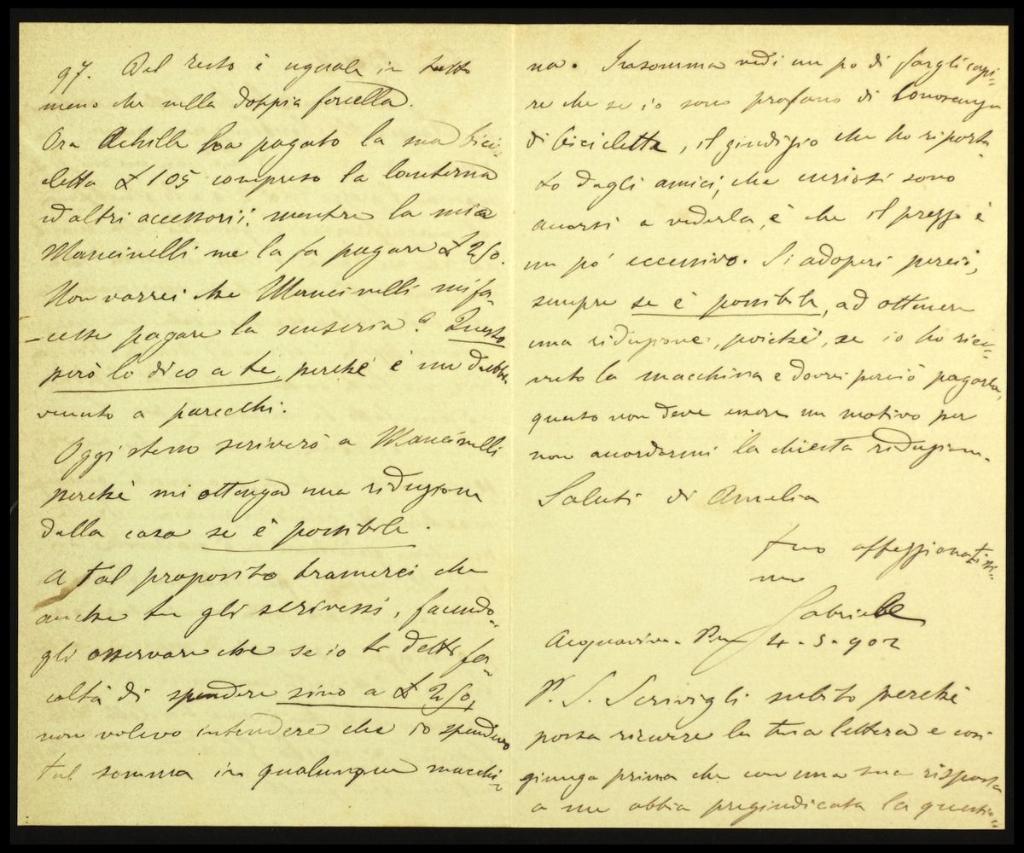 97. Del resto è uguale in tutto
meno che nella doppia forcella.
Ora Achille ha pagato la sua bici-
cletta £ 105 compreso la lanterna
ed altri accessorii; mentre la mia
Mancinelli me la fa pagare £ 250.
Non vorrei che Mancinelli mi fa-
cesse pagare la senseria? Questo
però lo dico a te, perché è un dubbio
venuto a parecchi.
Oggi stesso scriverò a Mancinelli
perché mi ottenga una riduzione
dalla casa se è possibile.
A tal proposito bramerei che
anche tu gli scrivessi, facendo-
gli osservare che se io ti detti fa-
coltà di spendere sino a £ 250,
non volevo intendere che io spendevo
tal somma in qualunque macchi-
na. Insomma vedi un po di fargli capi-
re che se io sono profano di conoscenza
di bicicletta, il giudizio che ho riporta-
to dagli amici, che curiosi sono
accorsi a vederla, è che il prezzo è
un pò eccessivo. Si adoperi perciò,
sempre se è possibile, ad ottenere
una riduzione, poiché, se io ho rice-
vuto la macchina e dovrei perciò pagarla,
questo non deve essere un motivo per
non accordarmi la chiesta riduzione.
Saluti di Amelia
tuo affezionatissi-
mo
Gabriele
Acquaviva 4-5-902
P. S. Scrivigli subito perché
possa ricevere la tua lettera e così
giunga prima che con una sua risposta
a me abbia pregiudicata la questio-